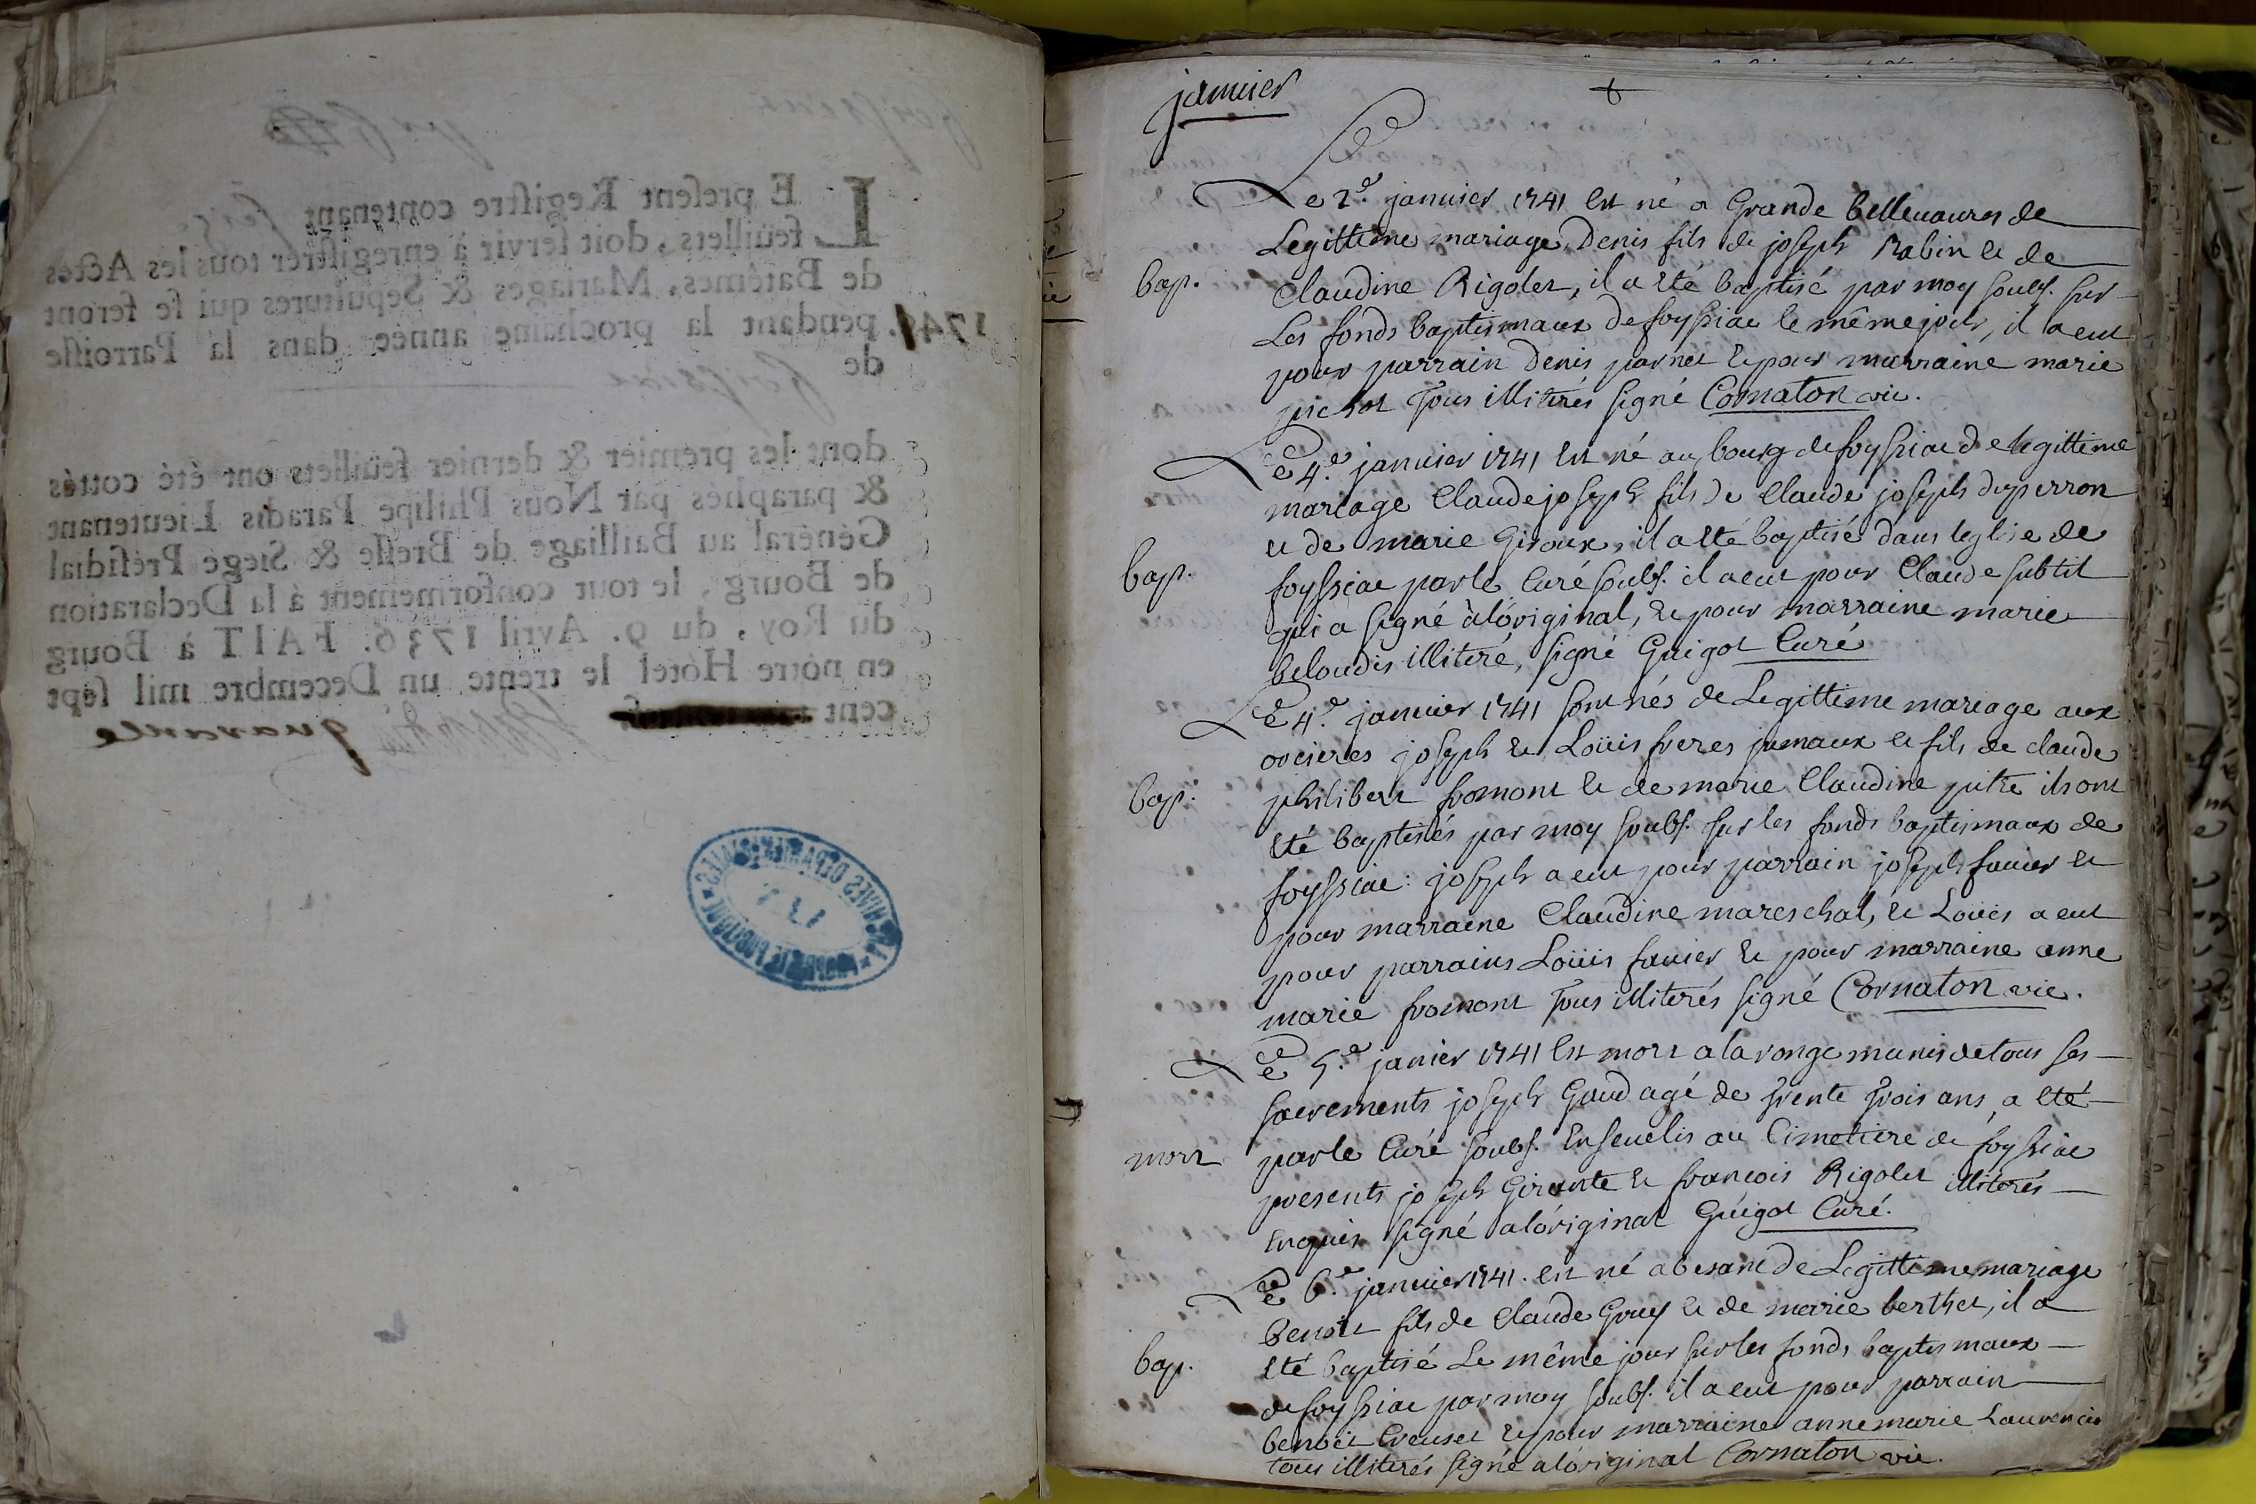 L E present Registre contenant seize
feüillets, doit servir à enregistrer tous les Actes
de Batêmes, Mariages & Sepultures qui se feront
1741. pendant la prochaine année dans la Parroisse
de foyssiac
dont les premier & dernier feüillets ont été cottés
& paraphés par Nous Philipe Paradis Lieutenant
Général au Bailliage de Bresse & Siege Présidial
de Bourg, le tout conformement à la Declaration
du Roy, du 9. Avril 1736. FAIT à Bourg
en nôtre Hôtel le trente un Decembre mil sept
cent quarante
janvier
Le 2.e janvier 1741 est né a Grande bellevavres de
Legittime mariage, Denis fils de joseph Rabin et de
bap. Claudine Rigolet, il a été baptisé par moy soubs. sur
Les fonds baptismaux de foyssiac le même jour, il a eut
pour parrain Denis parnet et pour marraine marie
pichot Tous illiterés signé Cornaton vic.
Le 4.e janvier 1741 est né au bourg de foyssiac de legittime
mariage Claude joseph fils de Claude joseph duperron
et de marie Giroux, il a eté baptisé dans leglise de
bap. foyssiac par le Curé soubs. il a eut pour Claude subtil
qui a signé à lóriginal, et pour marraine marie
beloudis illiteré, signé Guigot Curé
Le 4.e janvier 1741 sont nés de Legittime mariage aux
ovcieres joseph et Loüis freres jumaux et fils de claude
bap. philibert fromont et de marie Claudine pitre ils ont
eté baptisés par moy soubs. sur les fonds baptismaux de
foyssiac: joseph a eut pour parrain joseph favier et
pour marraine Claudine mareschal, et Loüis a eut
pour parrains Loüis favier et pour marraine anne
marie fromont Tous illiterés signé Cornaton vic.
Le 5.e janvier 1741 Est mort a la ronge munis de tous ses
sacrements joseph Gaud agé de trente trois ans, a eté
mort par le Curé soubs. Ensevelis au Cimetiere de foyssiac
presents joseph Girante et francois Rigolet illiterés
Enquis signé a lóriginal Guigot Curé.
Le 6.e janvier 1741. est né a besane de Legittime mariage
benoit fils de Claude Gouy et de marie berthet, il a
bap. eté baptisé Le même jour sur les fonds baptismaux
de foyssiac par moy soubs. il a eut pour parrain
benoit Creuset et pour marraine anne marie Laurencin
tous illiterés signé a lóriginal Cornaton vic.